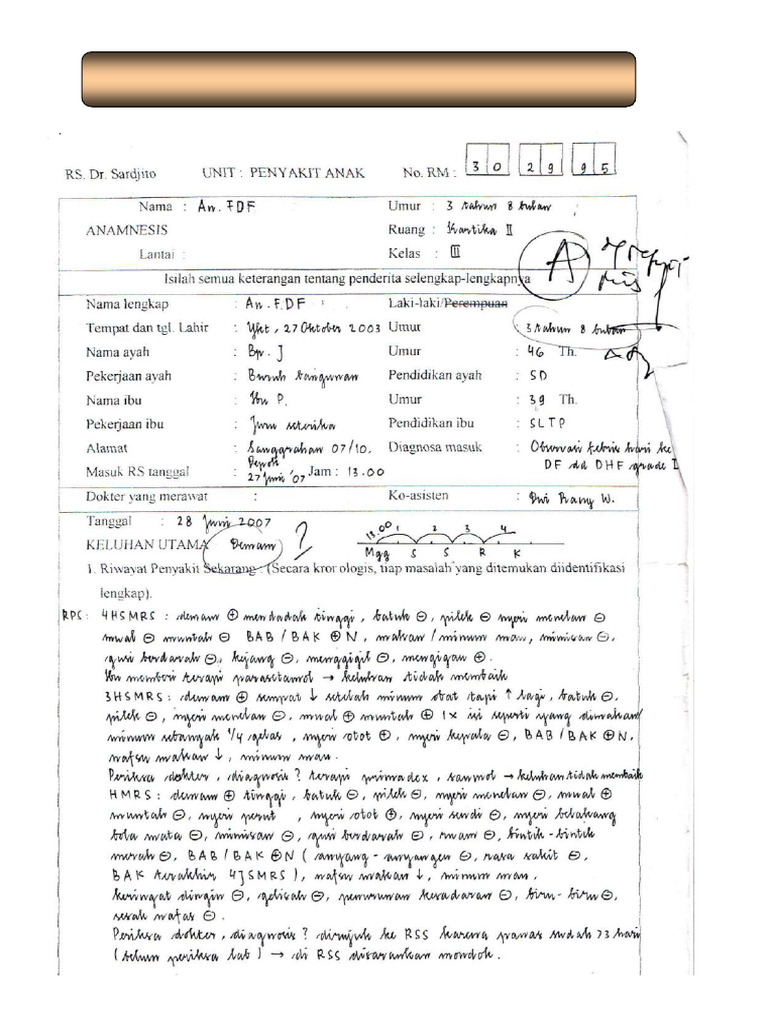 RS. Dr. Sardjito UNIT : PENYAKIT ANAK No. RM : 30 29 95
Nama : An. FDF Umur : 3 tahun 8 bulan
ANAMNESIS Ruang : Kartika II
Lantai : Kelas : III
A
Isilah semua keterangan tentang penderita selengkap-lengkapnya
Nama lengkap : An. F.DF Laki-laki/Perempuan
Tempat dan tgl. Lahir : Ykt, 27 Oktober 2003 Umur : 3 tahun 8 bulan
Nama ayah : Bp. J Umur : 46 Th.
Pekerjaan ayah : Buruh bangunan Pendidikan ayah : SD
Nama ibu : Ibu P. Umur : 39 Th.
Pekerjaan ibu : Juru seterika Pendidikan ibu : SLTP
Alamat : Sanggrahan 07/10. Depok Diagnosa masuk : Observasi febris hari ke
Masuk RS tanggal : 27 Juni '07 Jam : 13.00 DF dd DHF grade I
Dokter yang merawat : Ko-asisten : Dwi Rany W.
Tanggal : 28 Juni 2007
KELUHAN UTAMA Demam ? 13.00 1 2 3 4
Mgg S S R K
1. Riwayat Penyakit Sekarang : (Secara kror ologis, tiap masalah yang ditemukan diidentifikasi
lengkap).
RPS : 4HSMRS : demam ⊕ mendadak tinggi, batuk ⊖, pilek ⊖ nyeri menelan ⊖
mual ⊖ muntah ⊖ BAB/BAK ⊕N, makan/minum mau, mimisan ⊖,
gusi berdarah ⊖, kejang ⊖, menggigil ⊖, mengigau ⊕.
Ibu memberi terapi parasetamol → keluhan tidak membaik
3HSMRS : demam ⊕ sempat ↓ setelah minum obat tapi ↑ lagi, batuk ⊖,
pilek ⊖, nyeri menelan ⊖, mual ⊕ muntah ⊕ 1x isi seperti yang dimakan/
minum sebanyak 1/4 gelas, nyeri otot ⊕, nyeri kepala ⊖, BAB/BAK ⊕N,
nafsu makan ↓, minum mau.
Periksa dokter, diagnosis ? terapi primadex, sanmol → keluhan tidak membaik
HMRS : demam ⊕ tinggi, batuk ⊖, pilek ⊖, nyeri menelan ⊖, mual ⊕
muntah ⊖, nyeri perut , nyeri otot ⊕, nyeri sendi ⊖, nyeri belakang
bola mata ⊖, mimisan ⊖, gusi berdarah ⊖, ruam ⊖, bintik-bintik
merah ⊖, BAB/BAK ⊕N (anyang-anyangen ⊖, rasa sakit ⊖,
BAK terakhir 4JSMRS), nafsu makan ↓, minum mau,
keringat dingin ⊖, gelisah ⊖, penurunan kesadaran ⊖, biru-biru ⊖,
sesak nafas ⊖.
Periksa dokter, diagnosis ? dirujuk ke RSS karena panas sudah >3 hari
(belum periksa lab) → di RSS disarankan mondok.